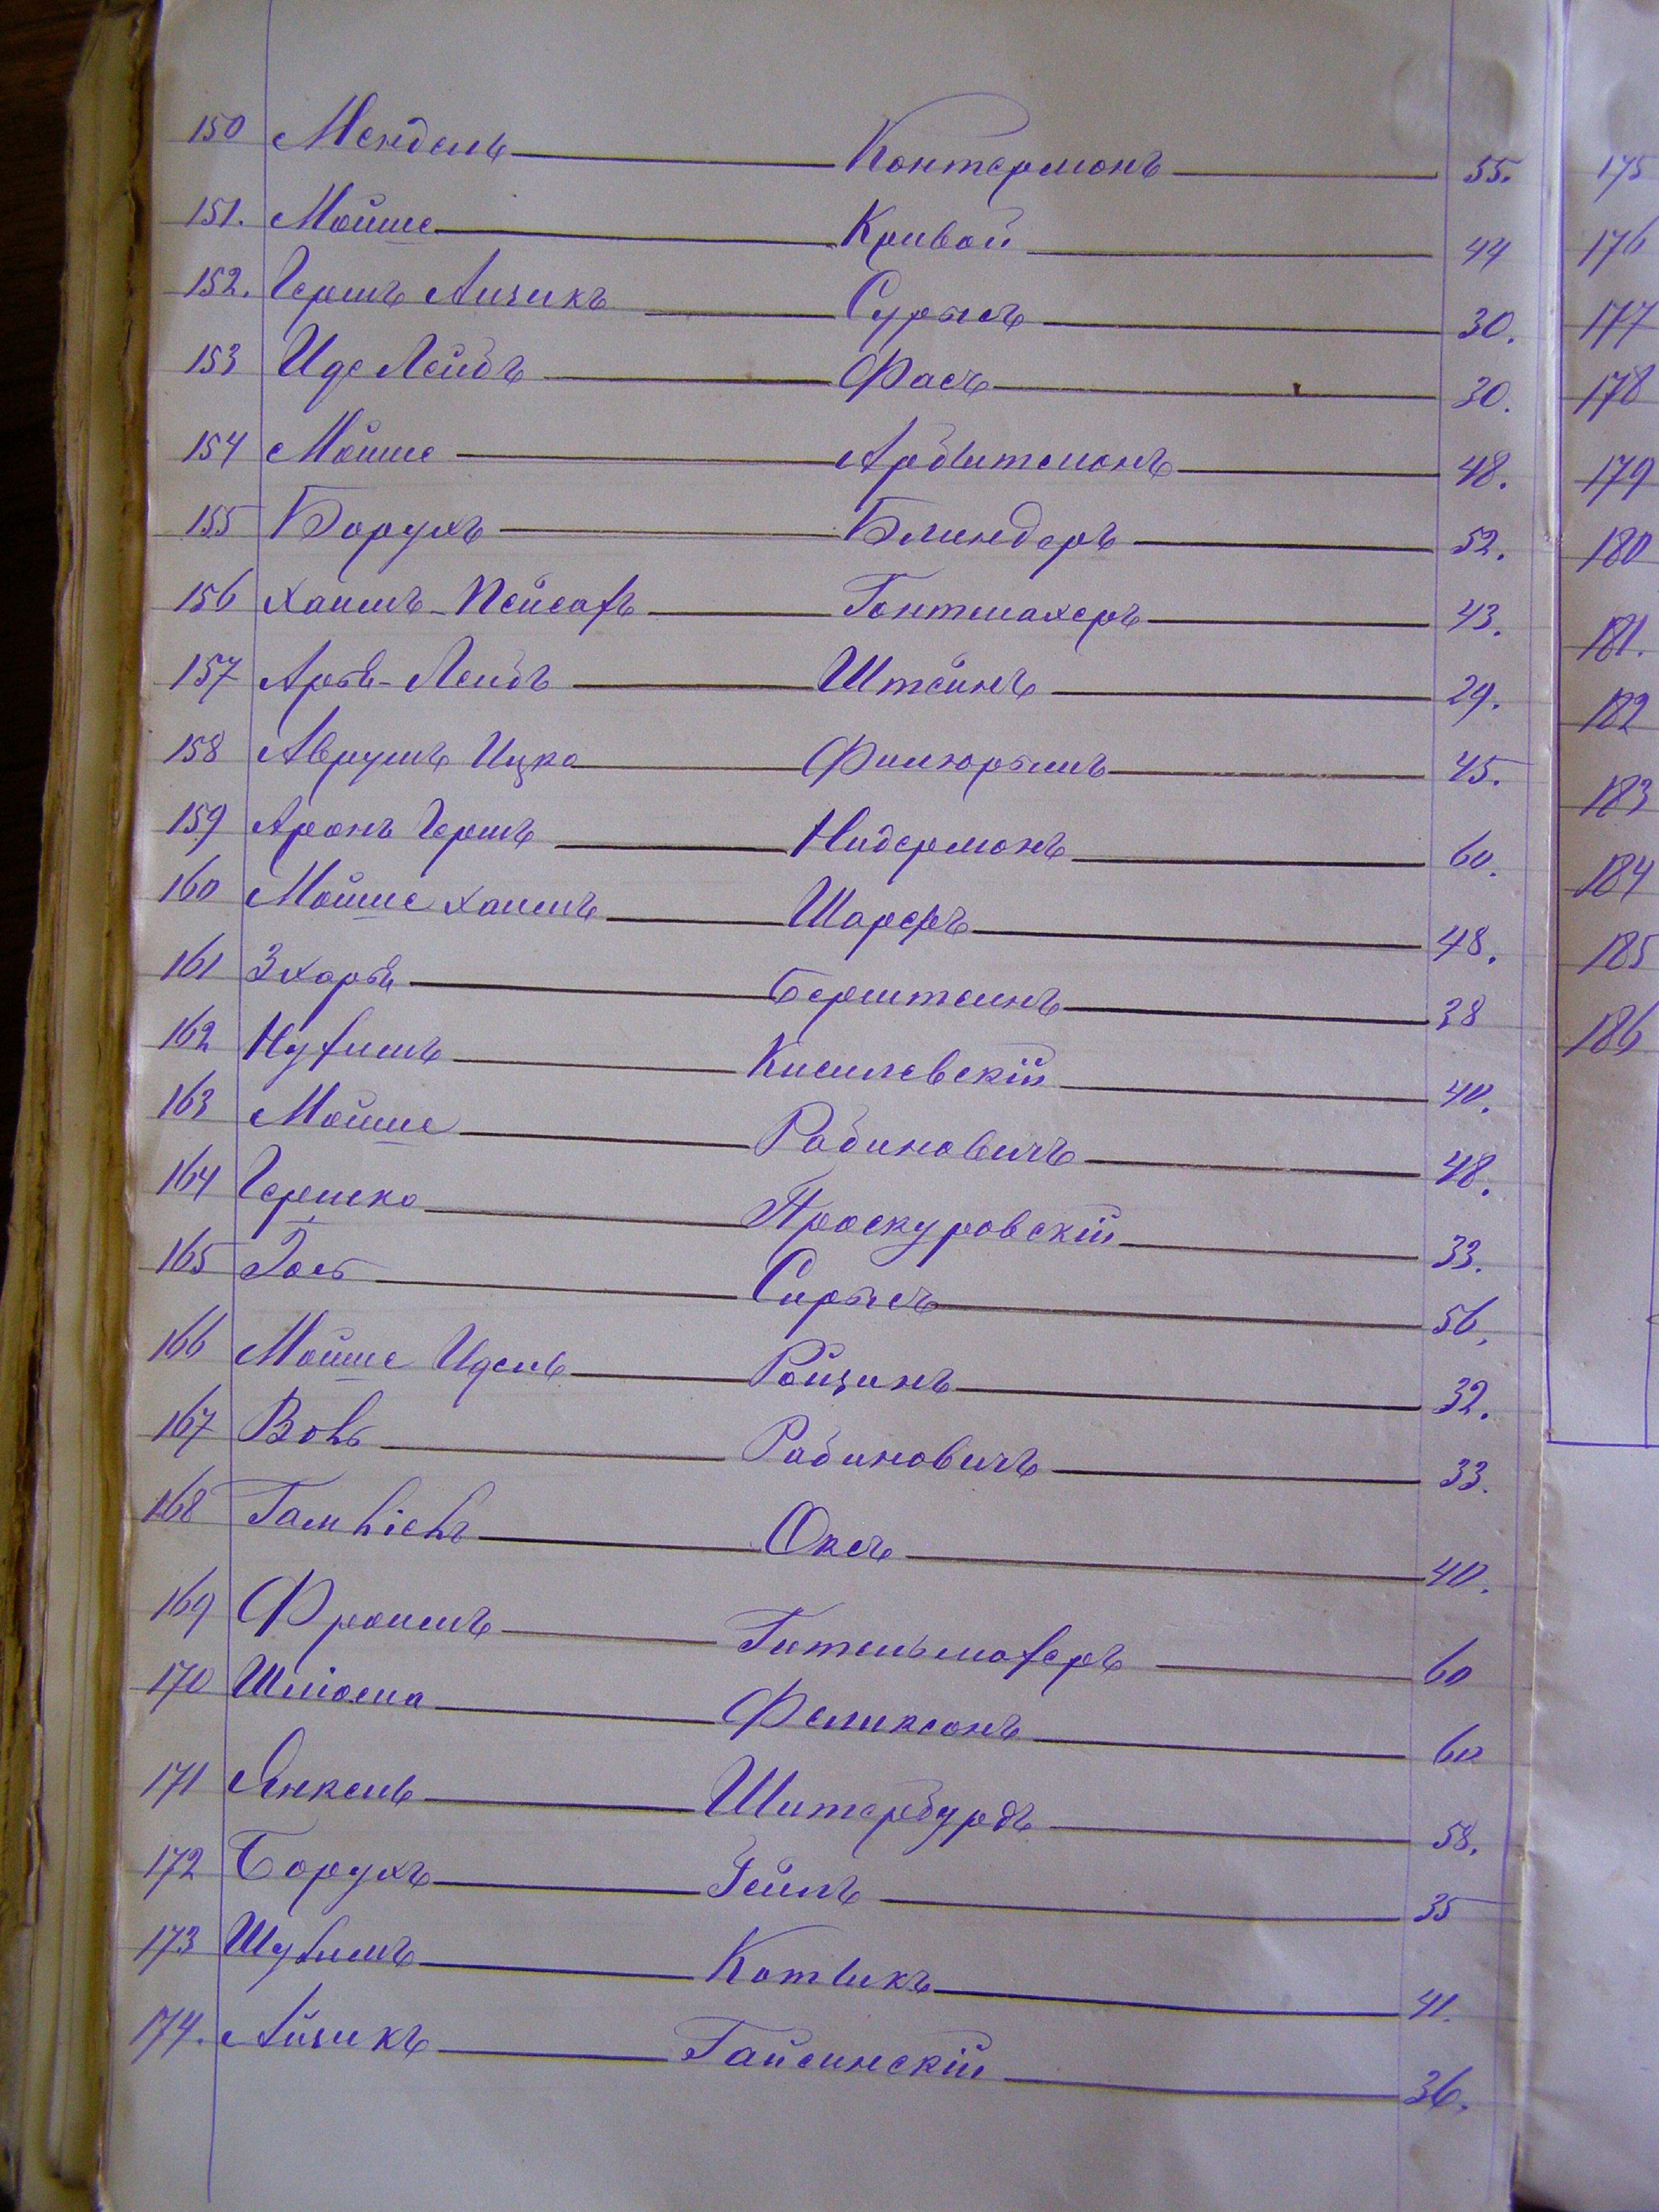 150 Мендель Контермонъ 55. 175
151. Мойше Кривой 44 176
152. Гершъ Айзикъ Сурысъ 30. 177
153 Иде Лейбъ Фасъ 30. 178
154 Мойше Арбитманъ 48. 179
155 Борухъ Блиндеръ 52. 180
156 Хаимъ-Пейсахъ Гонтмахеръ 43. 181.
157 Арье-Лейбъ Штейнъ 29. 182
158 Аврумъ Ицко 45. 183
159 Аронъ Гершъ Нидермонъ 60. 184
160 Мойше Хаимъ Шарфъ 48. 185
161 Зхарье Берштеинъ 38 186
162 Нухимъ Кисилевскій 40.
163 Мойше Рабиновичъ 48.
164 Гершко Проскуровскій 33.
165 Сирысъ 56.
166 Мойше Идель Ройзинъ 32.
167 Вовъ Рабиновичъ 33.
168 Оксъ 40.
169 Фроимъ Гительмахеръ 60
170 Шліома Феликсонъ 60
171 Янкель Штербурдъ 58.
172 Борухъ Гейлъ 35
173 Шулимъ Котликъ 41.
174. Айзикъ Гайсинскій 36.